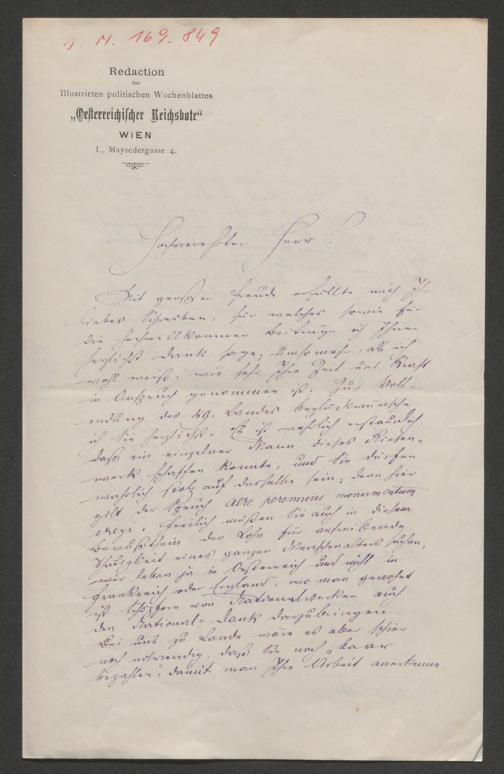 J. N. 169.849
Redaction
des
Illustrirten politischen Wochenblattes.
„Oesterreichischer Reichsbote“
WIEN
I., Maysedergasse 4.
Hochverehrter Herr!
Mit großer Freude erfüllte mich Ihr
liebes Schreiben, für welches sowie für
die hochwillkommen Beiträge ich Ihnen
herzlichst Dank sage; umsomehr, als ich
wohl weiß, wie sehr Ihre Zeit und Kraft
in Anspruch genommen ist. Zur Voll-
endung des 49. Bandes beglückwünsche
ich Sie herzlichst. Es ist wahrlich erstaunlich
daß ein einzelner Mann dieses Riesen-
werk schaffen konnte, und Sie dürfen
wahrlich stolz auf dasselbe sein; denn hier
gilt der Spruch aere perennius monumentum
exegi. Freilich müßen Sie auch in diesem
Bewußtsein den Lohn für aufreibende
Thätigkeit eines ganzen Menschenalters suchen,
wir leben ja in Oesterreich und nicht in
Frankreich oder England, wo man gewohnt
ist Schöpfern von Nationalwerken auch
den National-Dank darzubringen
Bei uns zu Lande wäre es aber schier
noch notwendig, daß Sie noch „baar
bezahlen“, damit man Ihre Arbeit anerkenne